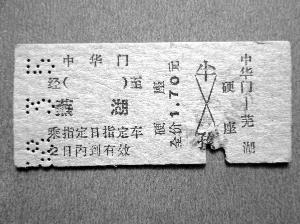 中华门
经( )至
芜湖
乘指定日指定车
2日内到有效
硬座
全价1.70元
小
孩
中华门—芜湖
硬座